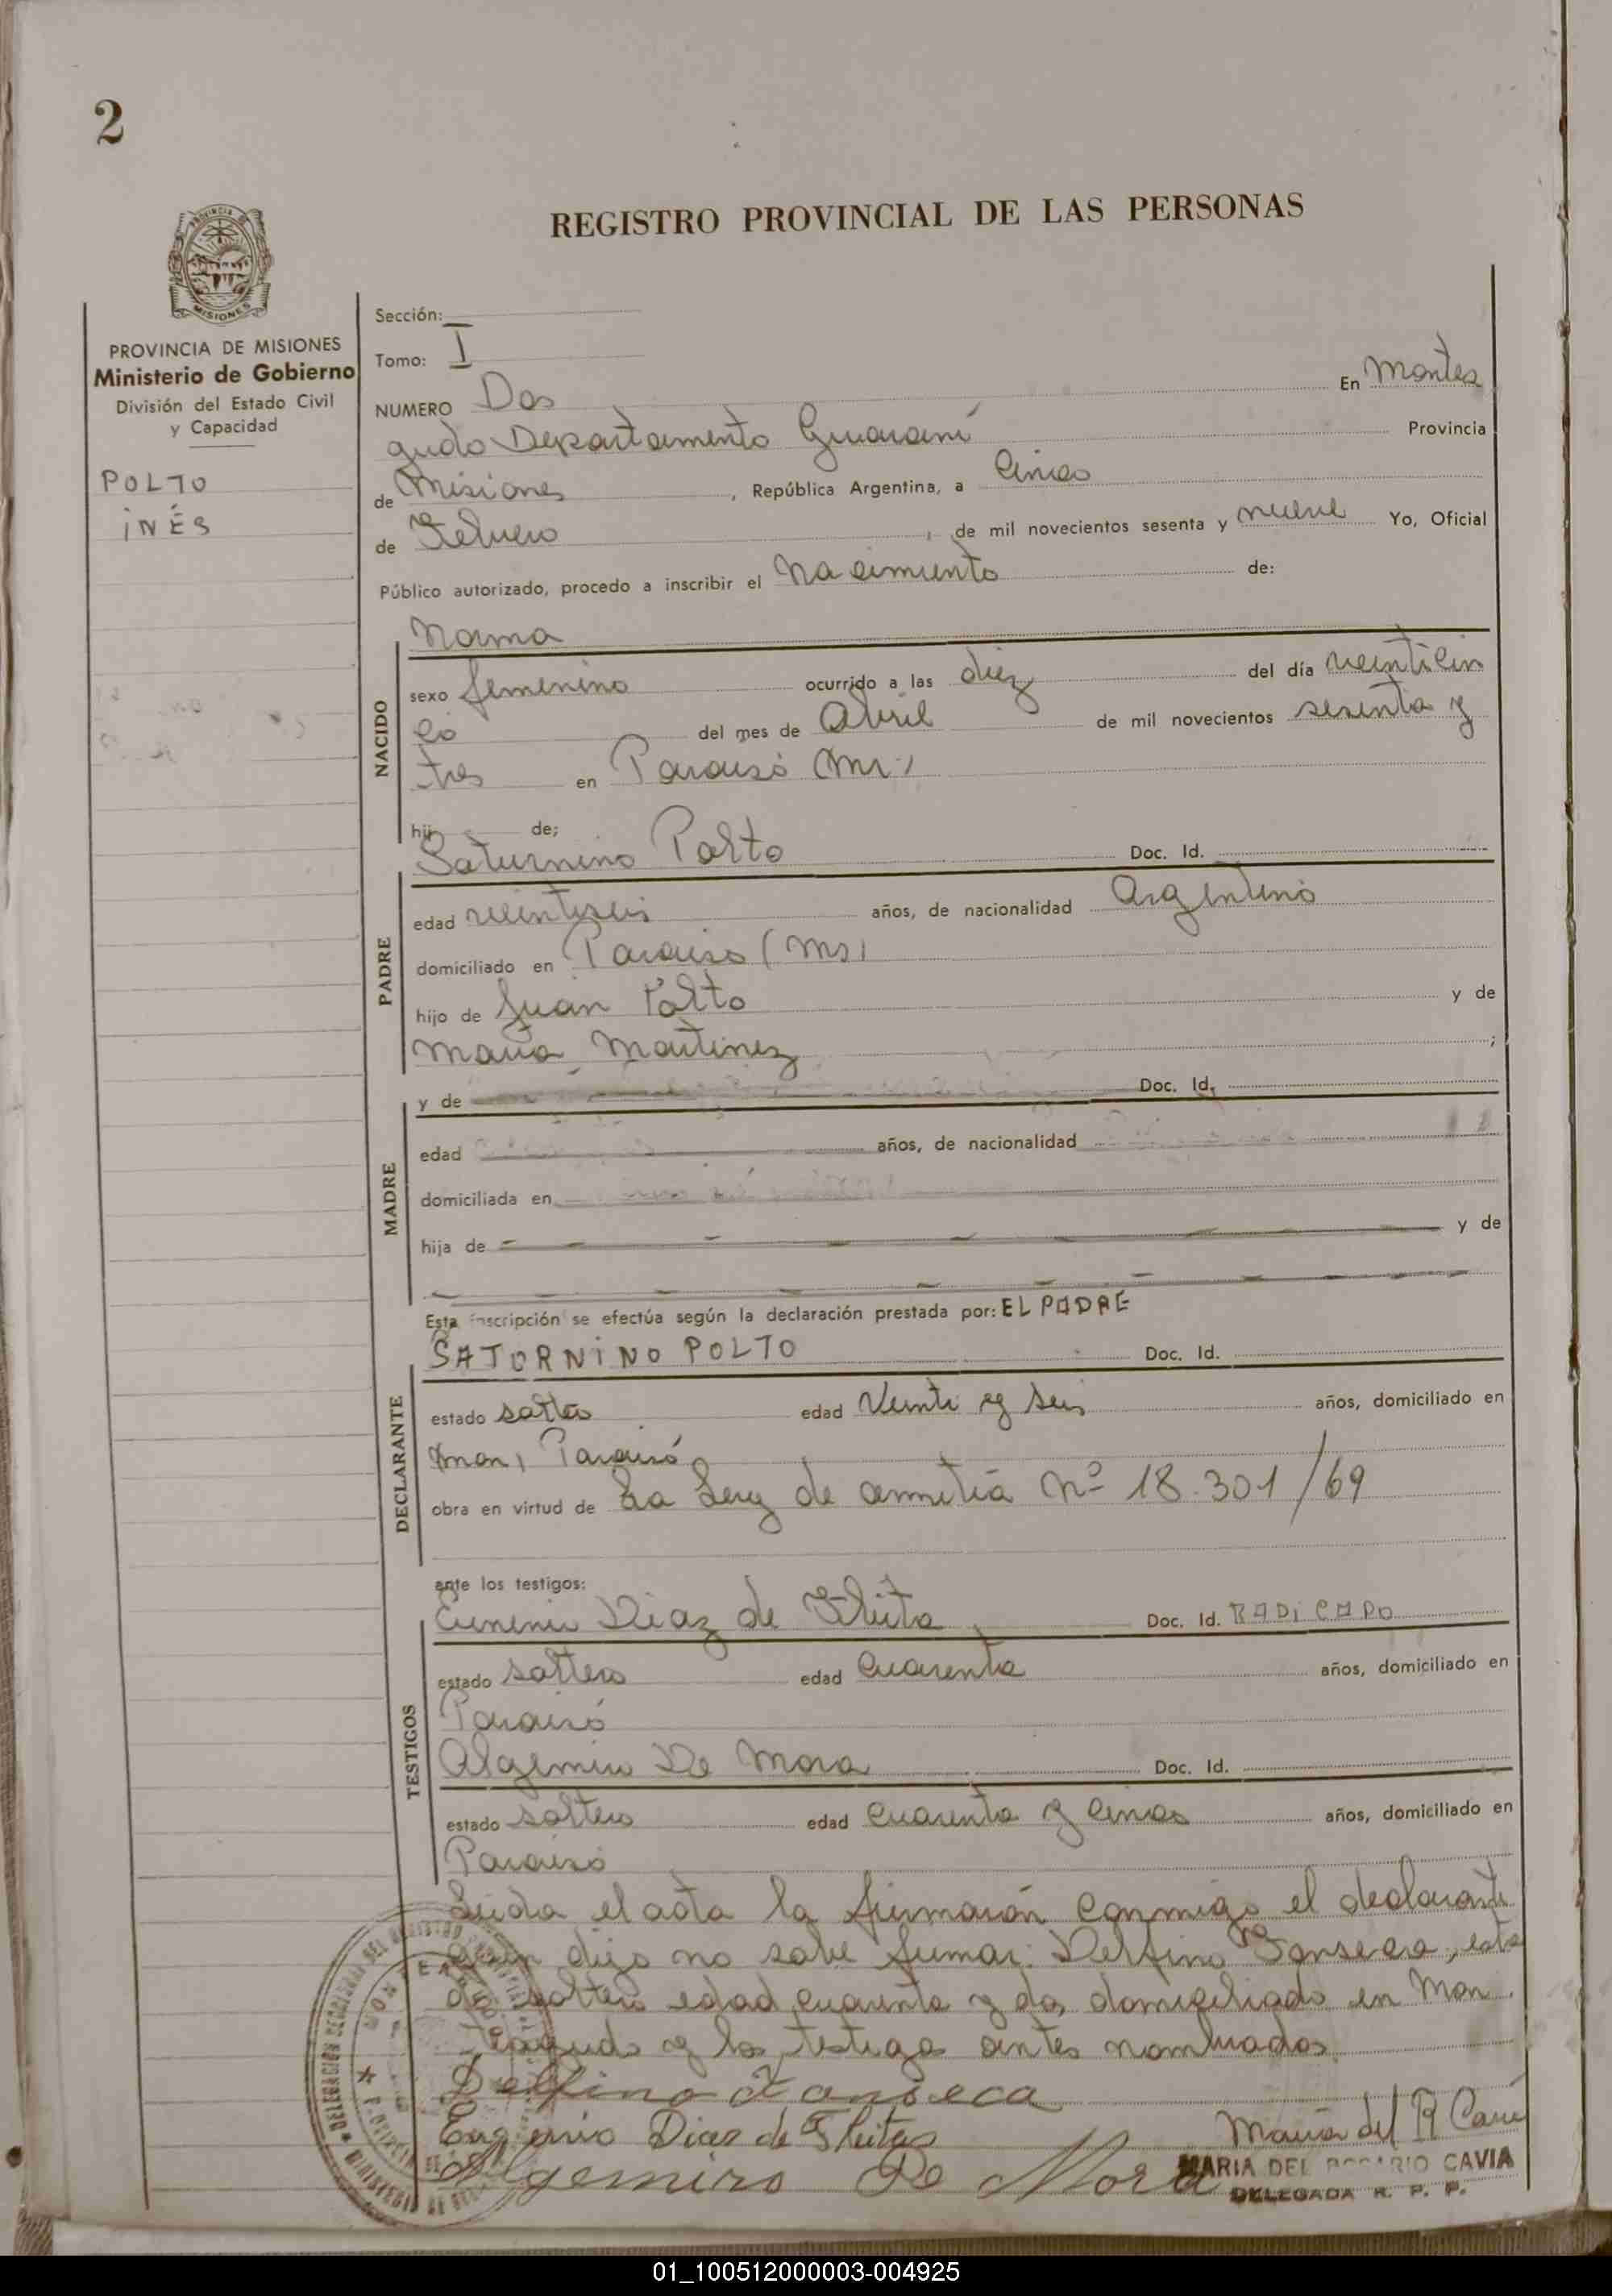 2
REGISTRO PROVINCIAL DE LAS PERSONAS
PROVINCIA DE MISIONES
Ministerio de Gobierno
División del Estado Civil
y Capacidad
POLTO
INÉS
Sección:
Tomo: I
NUMERO Dos En Montea
gudo Departamento Guaraní Provincia
de Misiones, República Argentina, a Cinco
de Febrero, de mil novecientos sesenta y nueve Yo, Oficial
Público autorizado, procedo a inscribir el Nacimiento de:
NACIDO
Norma
sexo femenino ocurrido a las diez del día veinticin
co del mes de Abril de mil novecientos sesenta y
tres en Paraiso
hij de;
PADRE
Saturnino Polto Doc. Id.
edad veintiseis años, de nacionalidad Argentino
domiciliado en Paraiso (Ms)
hijo de Juan Polto y de
Maria Martinez ;
MADRE
y de Doc. Id.
edad años, de nacionalidad
domiciliada en
hija de y de
Esta inscripción se efectúa según la declaración prestada por: EL PADRE
DECLARANTE
SATURNINO POLTO Doc. Id.
estado soltero edad Veinti y seis años, domiciliado en
Paraisó
obra en virtud de La Ley de amnitia Nº 18.301/69
ante los testigos:
TESTIGOS
Eugenio Diaz de Fleita Doc. Id. RADICADO
estado soltero edad Cuarenta años, domiciliado en
Paraisó
Algemiro De Mora Doc. Id.
estado soltero edad cuarenta y cinco años, domiciliado en
Paraiso
Leida el acta la firmarón conmigo el declarante
quien dijo no sabe firmar: Delfino Fonseca, esta
do soltero edad cuarenta y dos domiciliado en Mon
teagudo y los testigos antes nombrados.
Delfino Fonseca
Eugenio Diaz de Fleitas
Algemiro De Mora
Maria del R Cavia
MARIA DEL ROSARIO CAVIA
DELEGADA R. P. P.
01_100512000003-004925